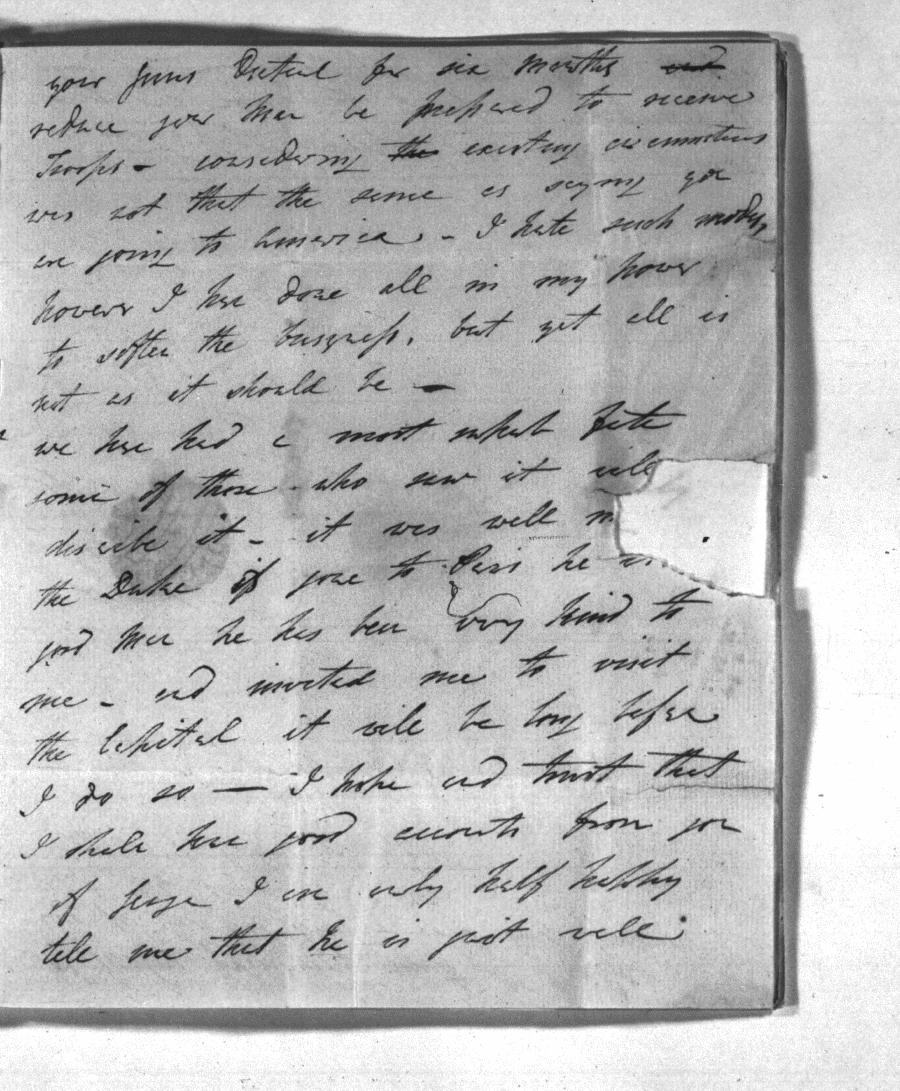 your Guns Dictual for six months and
reduce your Men be prepared to receive
Troops - considering the existing circumstances
was not that the same as saying you
are going to America - I hate such modes,
however I have done all in my power
to soften the business, but yet all is
not as it should be -
we have had a most fete
some of those who saw it will
discribe it - it was well m
the Duke if gone to Paris he is
good Man he has been very kind to
me - and invited me to visit
the Capital it will be long before
I do so — I hope and trust that
I shall have good accounts from you
of George I am only half happy
tell me that he is quit well